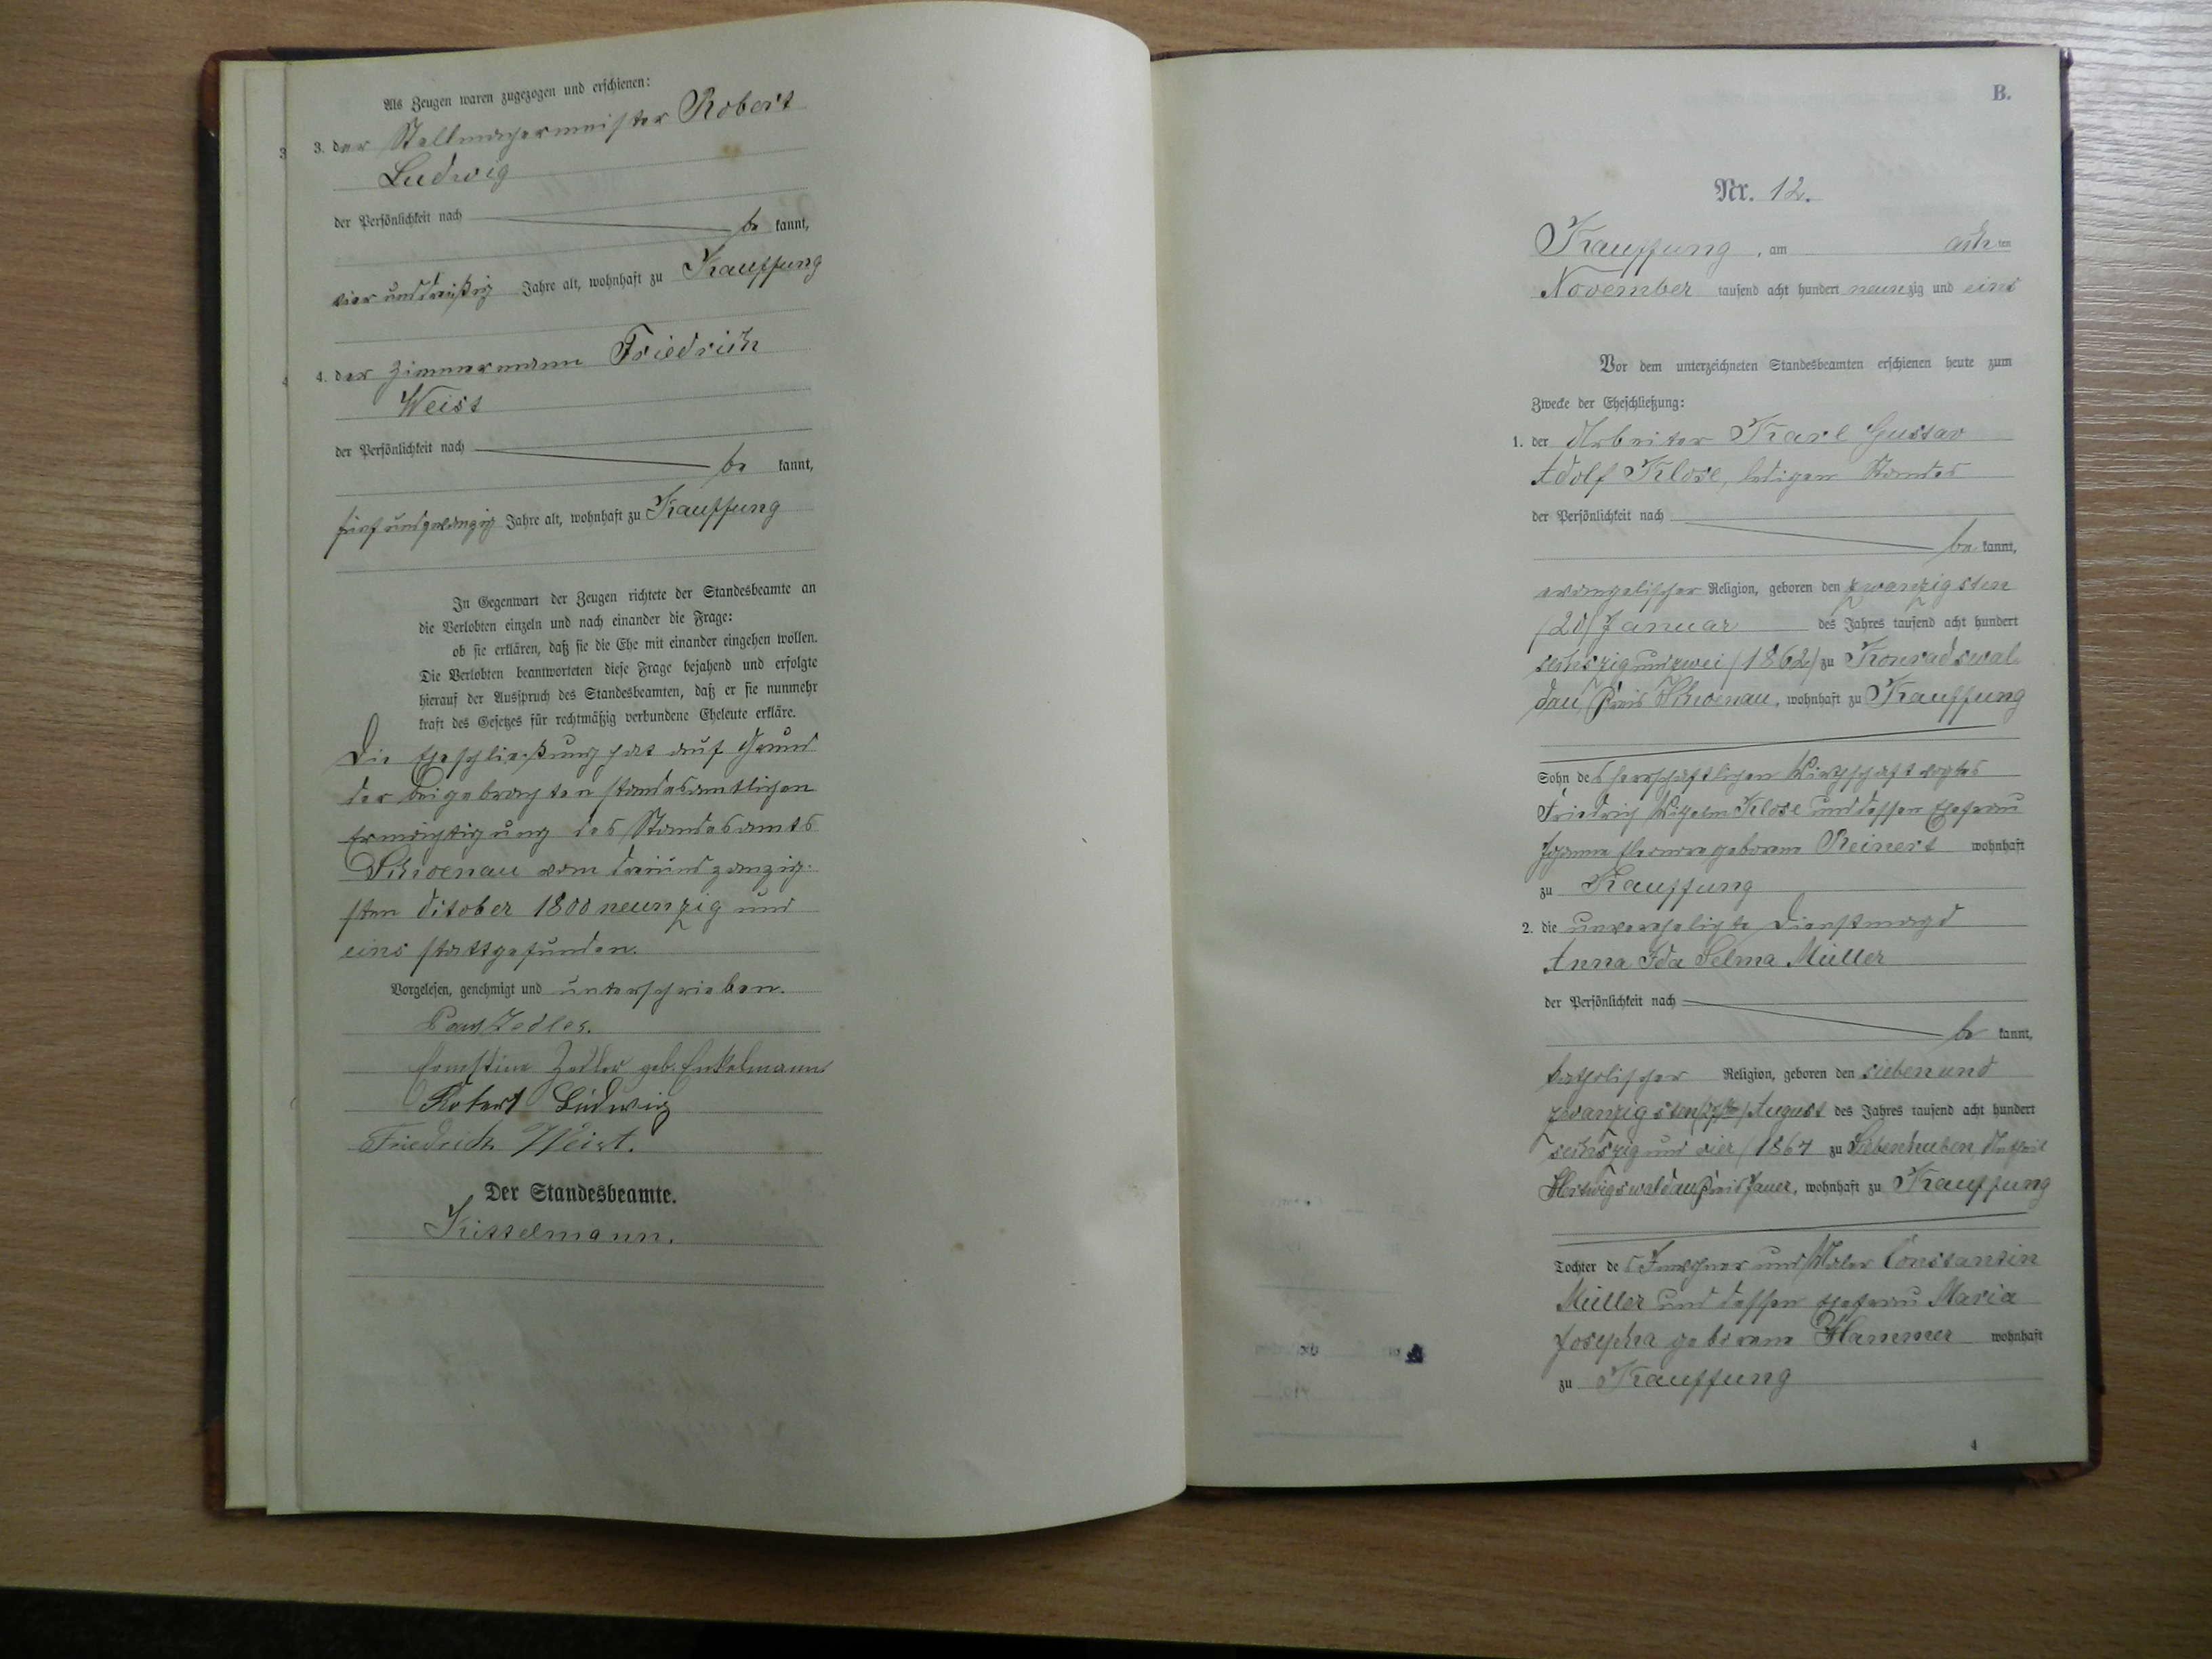 Als Zeugen waren zugezogen und erschienen:
3. der Stellmachermeister Robert
3
Ludwig
der Persönlichkeit nach
be kannt,
vier und dreißig Jahre alt, wohnhaft zu Kauffung
4. der Zimmermann Friedrich
4
Weist
der Persönlichkeit nach
be kannt,
fünf und zwanzig Jahre alt, wohnhaft zu Kauffung
In Gegenwart der Zeugen richtete der Standesbeamte an
die Verlobten einzeln und nach einander die Frage:
ob sie erklären, daß sie die Ehe mit einander eingehen wollen.
Die Verlobten beantworteten diese Frage bejahend und erfolgte
hierauf der Ausspruch des Standesbeamten, daß er sie nunmehr
kraft des Gesetzes für rechtmäßig verbundene Eheleute erkläre.
Die Eheschließung hat auf Grund
der beigebrachten standesamtlichen
Ermächtigung des Standesamts
Schoenau vom dreiundzwanzig-
sten October 1800 neunzig und
eins stattgefunden.
Vorgelesen, genehmigt und unterschrieben.
Paul Zedler.
Ernestine Zedler geb. Enkelmann
Robert Ludwig
Friedrich Weist.
Der Standesbeamte.
Kisselmann.
B.
Nr. 12.
Kauffung, am acht ten
November tausend acht hundert neunzig und eins
Vor dem unterzeichneten Standesbeamten erschienen heute zum
Zwecke der Eheschließung:
1. der Arbeiter Karl Gustav
Adolf Klose, ledigen Standes
der Persönlichkeit nach
be kannt,
evangelischer Religion, geboren den zwanzigsten
(20) Januar des Jahres tausend acht hundert
sechszig und zwei (1862) zu Konradswal-
dau Kreis Schoenau, wohnhaft zu Kauffung
Sohn des herrschaftlichen Wirthschaftvogtes
Friedrich Wilhelm Klose und dessen Ehefrau
Johanna Eleonore geborene Reinert wohnhaft
zu Kauffung
2. die unverehelichte Dienstmagd
Anna Ida Selma Müller
der Persönlichkeit nach
be kannt,
katholischer Religion, geboren den sieben und
zwanzigsten August des Jahres tausend acht hundert
sechszig und vier (1864 zu Siebenhuben, Antheil
Hertwigswaldau Kreis Jauer, wohnhaft zu Kauffung
Tochter des und Maler Constantin
Müller und dessen Ehefrau Maria
Josepha geborene Hammer wohnhaft
zu Kauffung
4